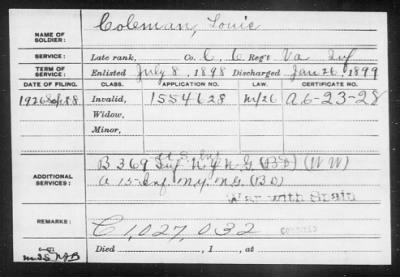 Coleman, Louie
NAME OF SOLDIER:
SERVICE: Late rank, Co. C, 6 Reg't Va Inf
TERM OF SERVICE: Enlisted July 8, 1898 Discharged Jan 26, 1899
DATE OF FILING. CLASS. APPLICATION NO. LAW. CERTIFICATE NO.
1926 Invalid, 1554628 A 6-23-28
Widow,
Minor,
ADDITIONAL SERVICES: B 369 Inf N.Y.N.G (BD) (WW)
A 15 Inf. N.Y. N.G. (BD)
War with Spain
REMARKS: C 1,027,032
Died , 1 , at